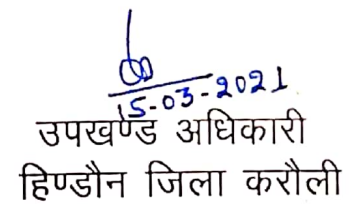 15-03-2021
उपखण्ड अधिकारी
हिण्डौन जिला करौली